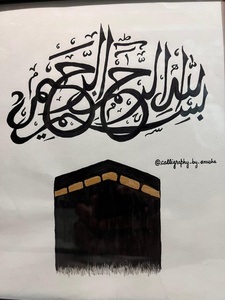 بسم الله الرحمن الرحيم
@calligraphy_by_amcha